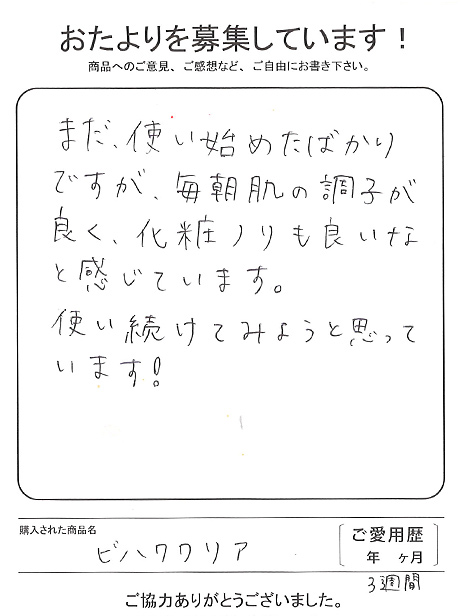 おたよりを募集しています！
商品へのご意見、ご感想など、ご自由にお書き下さい。
まだ、使い始めたばかり
ですが、毎朝肌の調子が
良く、化粧ノリも良いな
と感じています。
使い続けてみようと思って
います！
購入された商品名
ビハククリア
ご愛用歴
年　ヶ月
3週間
ご協力ありがとうございました。